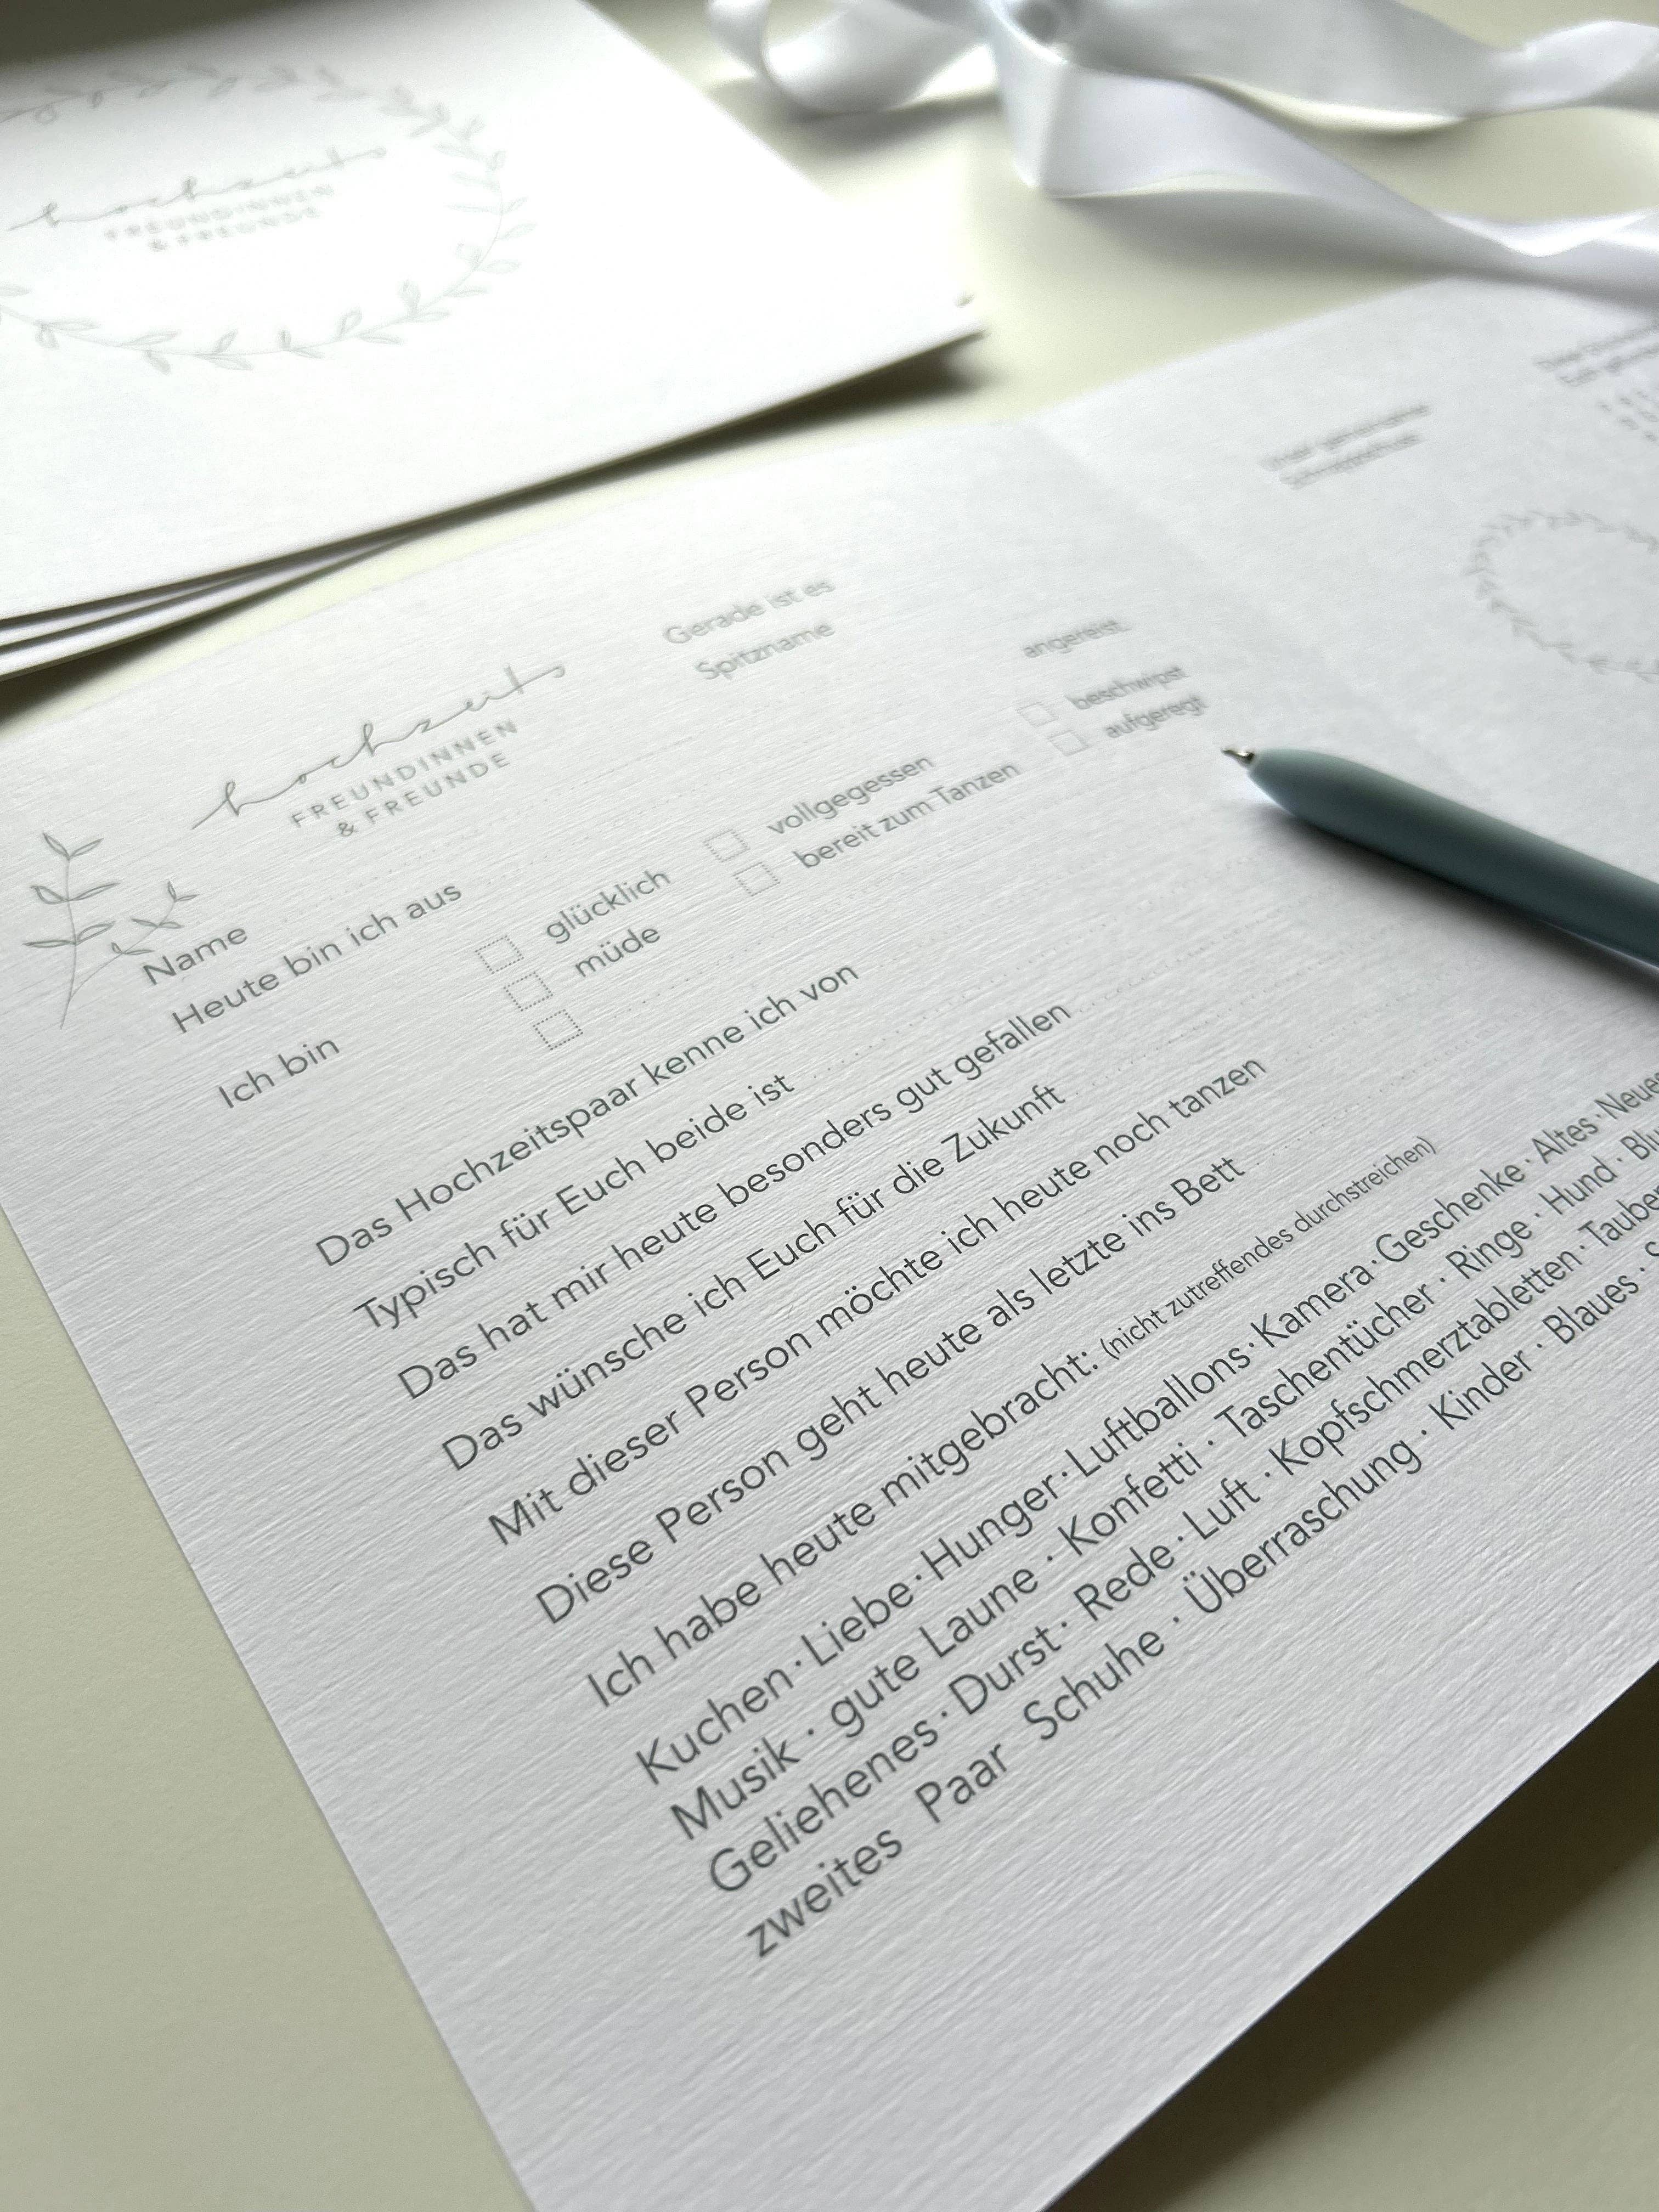 hochzeits
FREUNDINNEN
& FREUNDE
hochzeits
FREUNDINNEN
& FREUNDE
Gerade ist es
Name
Spitzname
Heute bin ich aus
angereist.
Ich bin
glücklich
vollgegessen
beschwipst
müde
bereit zum Tanzen
aufgeregt
Das Hochzeitspaar kenne ich von
Typisch für Euch beide ist
Das hat mir heute besonders gut gefallen
Das wünsche ich Euch für die Zukunft
Mit dieser Person möchte ich heute noch tanzen
Diese Person geht heute als letzte ins Bett
Ich habe heute mitgebracht: (nicht zutreffendes durchstreichen)
Kuchen · Liebe · Hunger · Luftballons · Kamera · Geschenke · Altes · Neues
Musik · gute Laune · Konfetti · Taschentücher · Ringe · Hund ·
Geliehenes · Durst · Rede · Luft · Kopfschmerztabletten ·
zweites Paar Schuhe · Überraschung · Kinder · Blaues ·